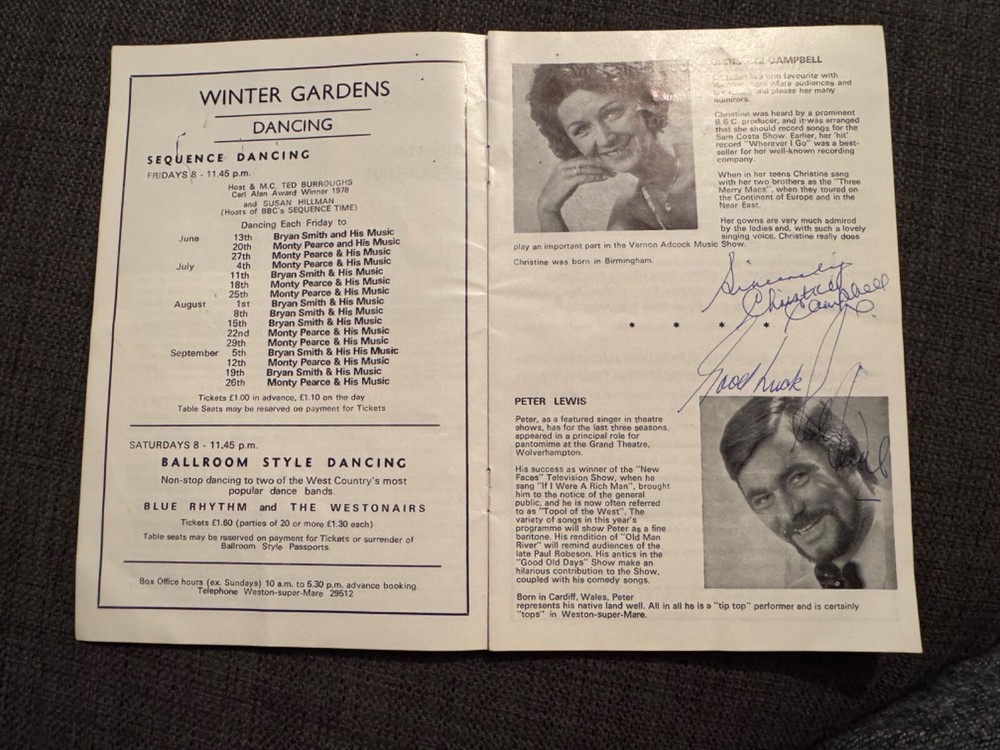 WINTER GARDENS
DANCING
SEQUENCE DANCING
FRIDAYS 8 - 11.45 p.m.
Host & M.C. TED BURROUGHS
Carl Alan Award Winner 1978
and SUSAN HILLMAN
(Hosts of BBC's SEQUENCE TIME)
Dancing Each Friday to
June 13th Bryan Smith and His Music
20th Monty Pearce and His Music
27th Monty Pearce & His Music
July 4th Monty Pearce & His Music
11th Bryan Smith & His Music
18th Monty Pearce & His Music
25th Monty Pearce & His Music
August 1st Bryan Smith & His Music
8th Bryan Smith & His Music
15th Bryan Smith & His Music
22nd Monty Pearce & His Music
29th Monty Pearce & His Music
September 5th Bryan Smith & His His Music
12th Monty Pearce & His Music
19th Bryan Smith & His Music
26th Monty Pearce & His Music
Tickets £1.00 in advance, £1.10 on the day
Table Seats may be reserved on payment for Tickets
SATURDAYS 8 - 11.45 p.m.
BALLROOM STYLE DANCING
Non-stop dancing to two of the West Country's most
popular dance bands
BLUE RHYTHM and THE WESTONAIRS
Tickets £1.60 (parties of 20 or more £1.30 each)
Table seats may be reserved on payment for Tickets or surrender of
Ballroom Style Passports
Box Office hours (ex. Sundays) 10 a.m. to 5.30 p.m. advance booking.
Telephone Weston-super-Mare 29512
CAMPBELL
favourite with
audiences and
please her many
admirers.
Christine was heard by a prominent
B.B.C. producer, and it was arranged
that she should record songs for the
Sam Costa Show. Earlier, her 'hit'
record "Wherever I Go" was a best-
seller for her well-known recording
company.
When in her teens Christine sang
with her two brothers as the "Three
Merry Macs", when they toured on
the Continent of Europe and in the
Near East.
Her gowns are very much admired
by the ladies and, with such a lovely
singing voice, Christine really does
play an important part in the Vernon Adcock Music Show.
Christine was born in Birmingham.
Sincerely
Christine
Campbell
* * * *
Good Luck
PETER LEWIS
Peter, as a featured singer in theatre
shows, has for the last three seasons,
appeared in a principal role for
pantomime at the Grand Theatre,
Wolverhampton.
His success as winner of the "New
Faces" Television Show, when he
sang "If I Were A Rich Man", brought
him to the notice of the general
public, and he is now often referred
to as "Topol of the West". The
variety of songs in this year's
programme will show Peter as a fine
baritone. His rendition of "Old Man
River" will remind audiences of the
late Paul Robeson. His antics in the
"Good Old Days" Show make an
hilarious contribution to the Show,
coupled with his comedy songs.
Born in Cardiff, Wales, Peter
represents his native land well. All in all he is a "tip top" performer and is certainly
"tops" in Weston-super-Mare.